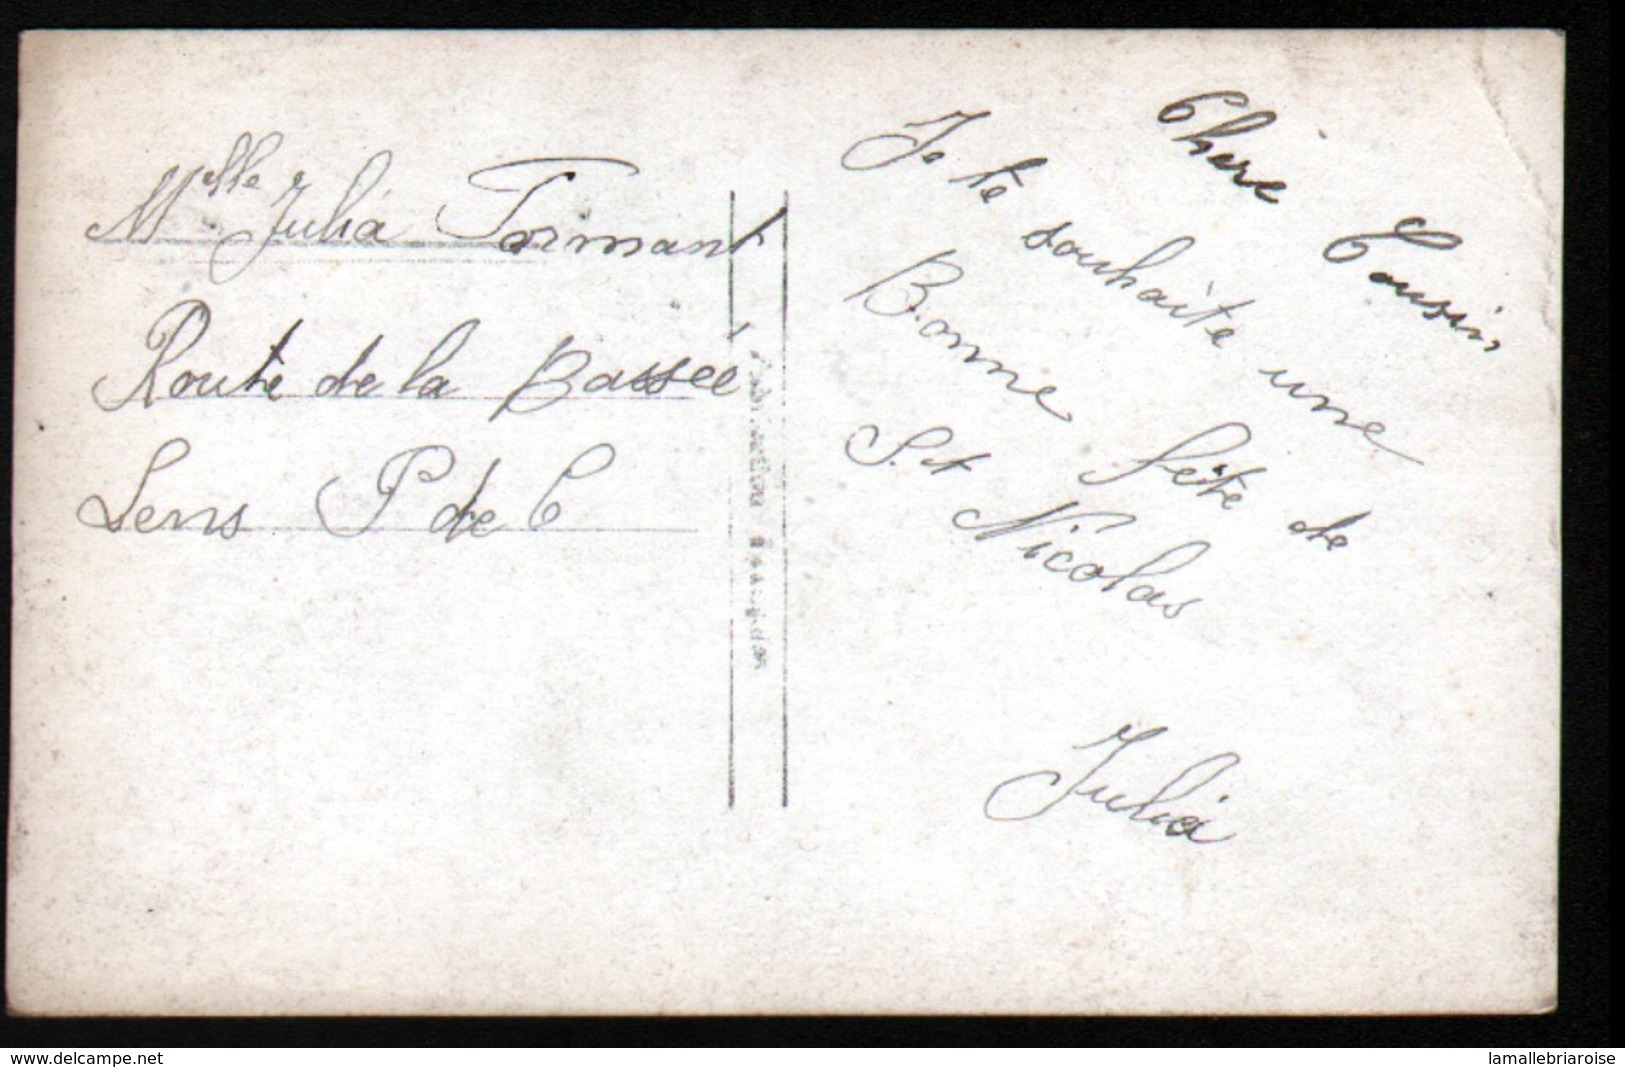 Melle Julia Formant
Route de la Bassee
Lens P de C
Chere Cousin
Je te souhaite une
Bonne fête de
St Nicolas
Julia
www.delcampe.net
lamallebriaroise